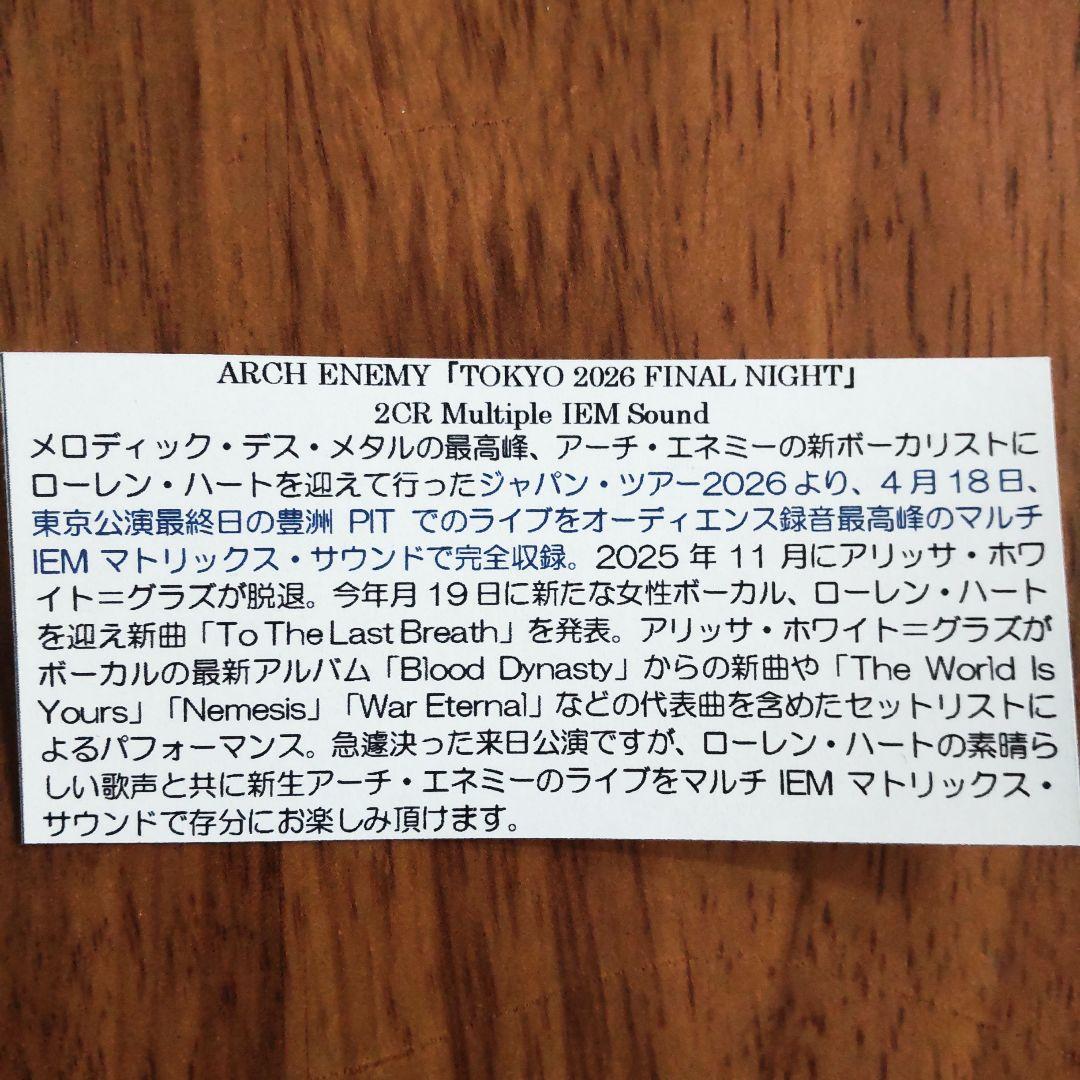 ARCH ENEMY「TOKYO 2026 FINAL NIGHT」
2CR Multiple IEM Sound
メロディック・デス・メタルの最高峰、アーチ・エネミーの新ボーカリストに
ローレン・ハートを迎えて行ったジャパン・ツアー2026より、4月18日、
東京公演最終日の豊洲 PIT でのライブをオーディエンス録音最高峰のマルチ
IEM マトリックス・サウンドで完全収録。2025 年 11 月にアリッサ・ホワ
イト＝グラズが脱退。今年月 19 日に新たな女性ボーカル、ローレン・ハート
を迎え新曲「To The Last Breath」を発表。アリッサ・ホワイト＝グラズが
ボーカルの最新アルバム「Blood Dynasty」からの新曲や「The World Is
Yours」「Nemesis」「War Eternal」などの代表曲を含めたセットリストに
よるパフォーマンス。急遽決った来日公演ですが、ローレン・ハートの素晴ら
しい歌声と共に新生アーチ・エネミーのライブをマルチ IEM マトリックス・
サウンドで存分にお楽しみ頂けます。